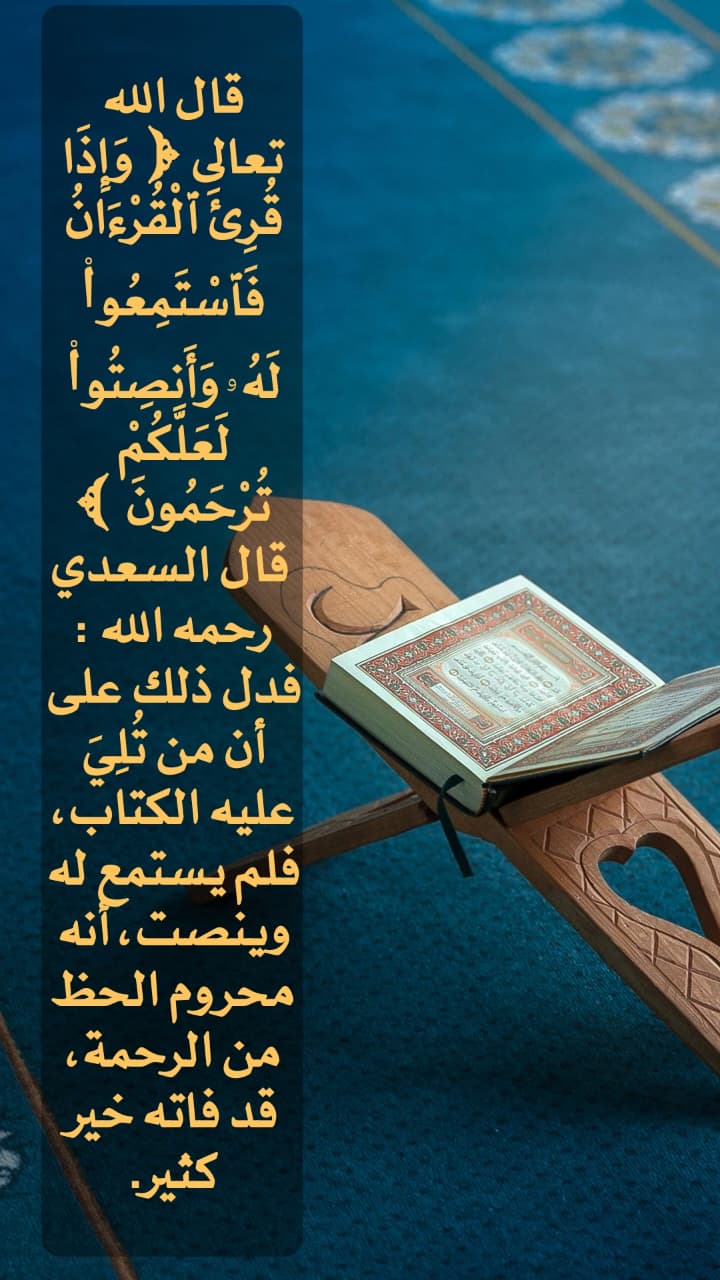 قال الله
تعالى ﴿ وَإِذَا
قُرِئَ ٱلْقُرْءَانُ
فَٱسْتَمِعُوا۟
لَهُۥ وَأَنصِتُوا۟
لَعَلَّكُمْ
تُرْحَمُونَ ﴾
قال السعدي
رحمه الله :
فدل ذلك على
أن من تُلِيَ
عليه الكتاب،
فلم يستمع له
وينصت، أنه
محروم الحظ
من الرحمة،
قد فاته خير
كثير.